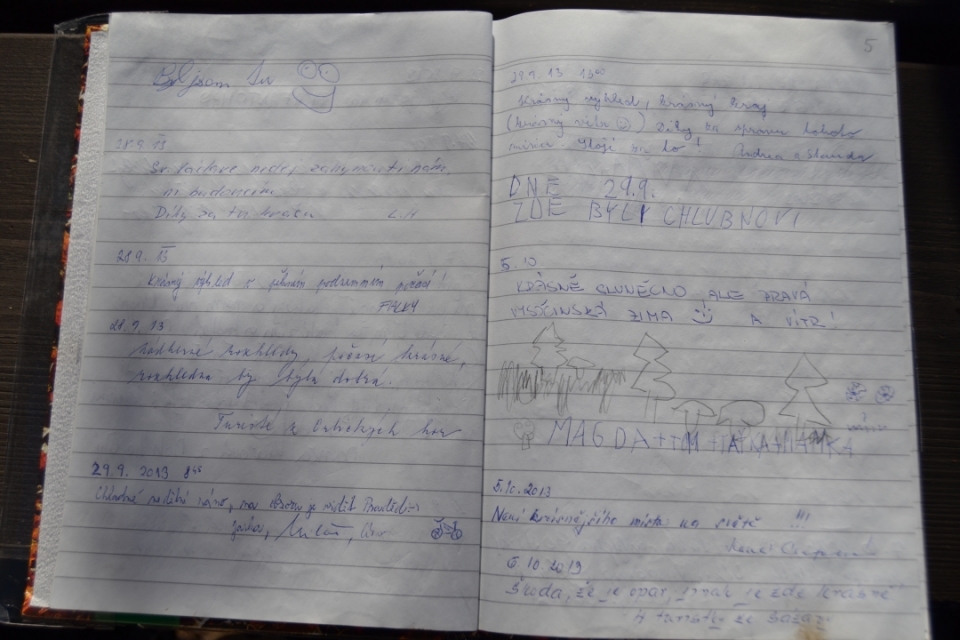 Byl jsem tu
28.9. 13
Díky za tu krásu L.H
28.9. 13
Krásný výhled v pěkném podzimním počasí!
FALKY
28.9. 13
Nádherné rozhledy, počasí krásné,
rozhledna by byla dobrá.
Turisté z Orlických hor
29.9. 2013 8 45
Chladné nedělní ráno, na obzoru je vidět Praděd
Milan,
5
29.9. 13 13 40
Krásný výhled, krásný kraj
(krásný větr ☺) Díky za správu tohoto
místa. Stojí za to! Andrea a Standa
DNE 29.9.
ZDE BYLI CHLUBNOVI
5.10
KRÁSNÉ SLUNÉČKO ALE PRAVÁ
VYSOČINSKÁ ZIMA ☺ A VÍTR!
MAGDA+TIM+TAŤKA+MAMKA
5.10.2013
Není krásnějšího místa na světě !!!
6.10.2013
Škoda, že je opar, jinak je zde krásně
4 turistky ze Sázavy